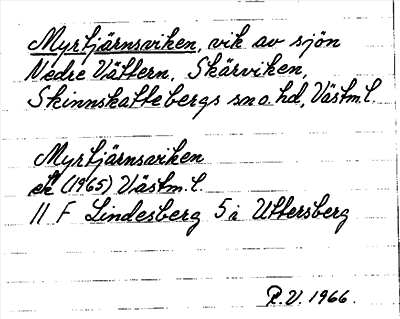 Myrtjärnsviken, vik av sjön
Nedre Vättern, Skärviken,
Skinnskattebergs sn o. hd, Västm. l.
Myrtjärnsviken
ek (1965) Västm. l.
11 F Lindesberg 5 i Uttersberg
P.V. 1966.